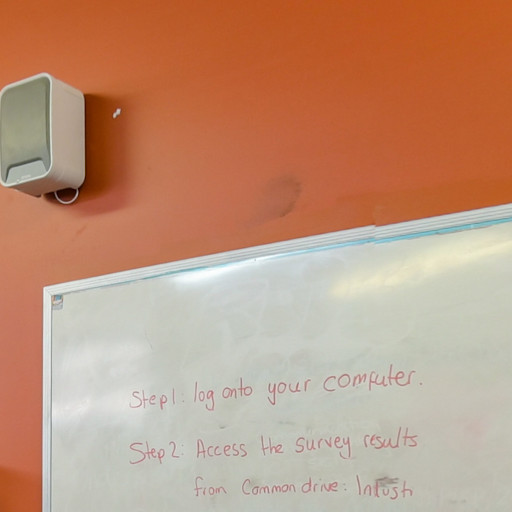 Step 1: log onto your computer.
Step 2: Access the survey results
from Common drive: